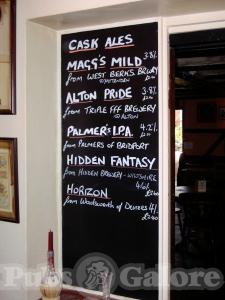 CASK ALES
MAGG'S MILD 3.8%
from WEST BERKS. BRWRY
ALTON PRIDE 3.8%
from TRIPLE FFF BREWERY
ALTON
PALMER'S I.P.A. 4.2%
from PALMERS OF BRIDPORT
HIDDEN FANTASY
from HIDDEN BREWERY - WILTSHIRE
HORIZON
from Wadsworth of Devizes 4%
Pubs Galore